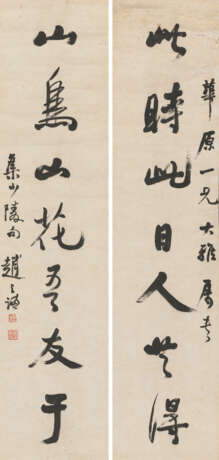 華原一兄大雅屬書
此時此日人共得
山鳥山花吾友于
集少陵句 趙之謙